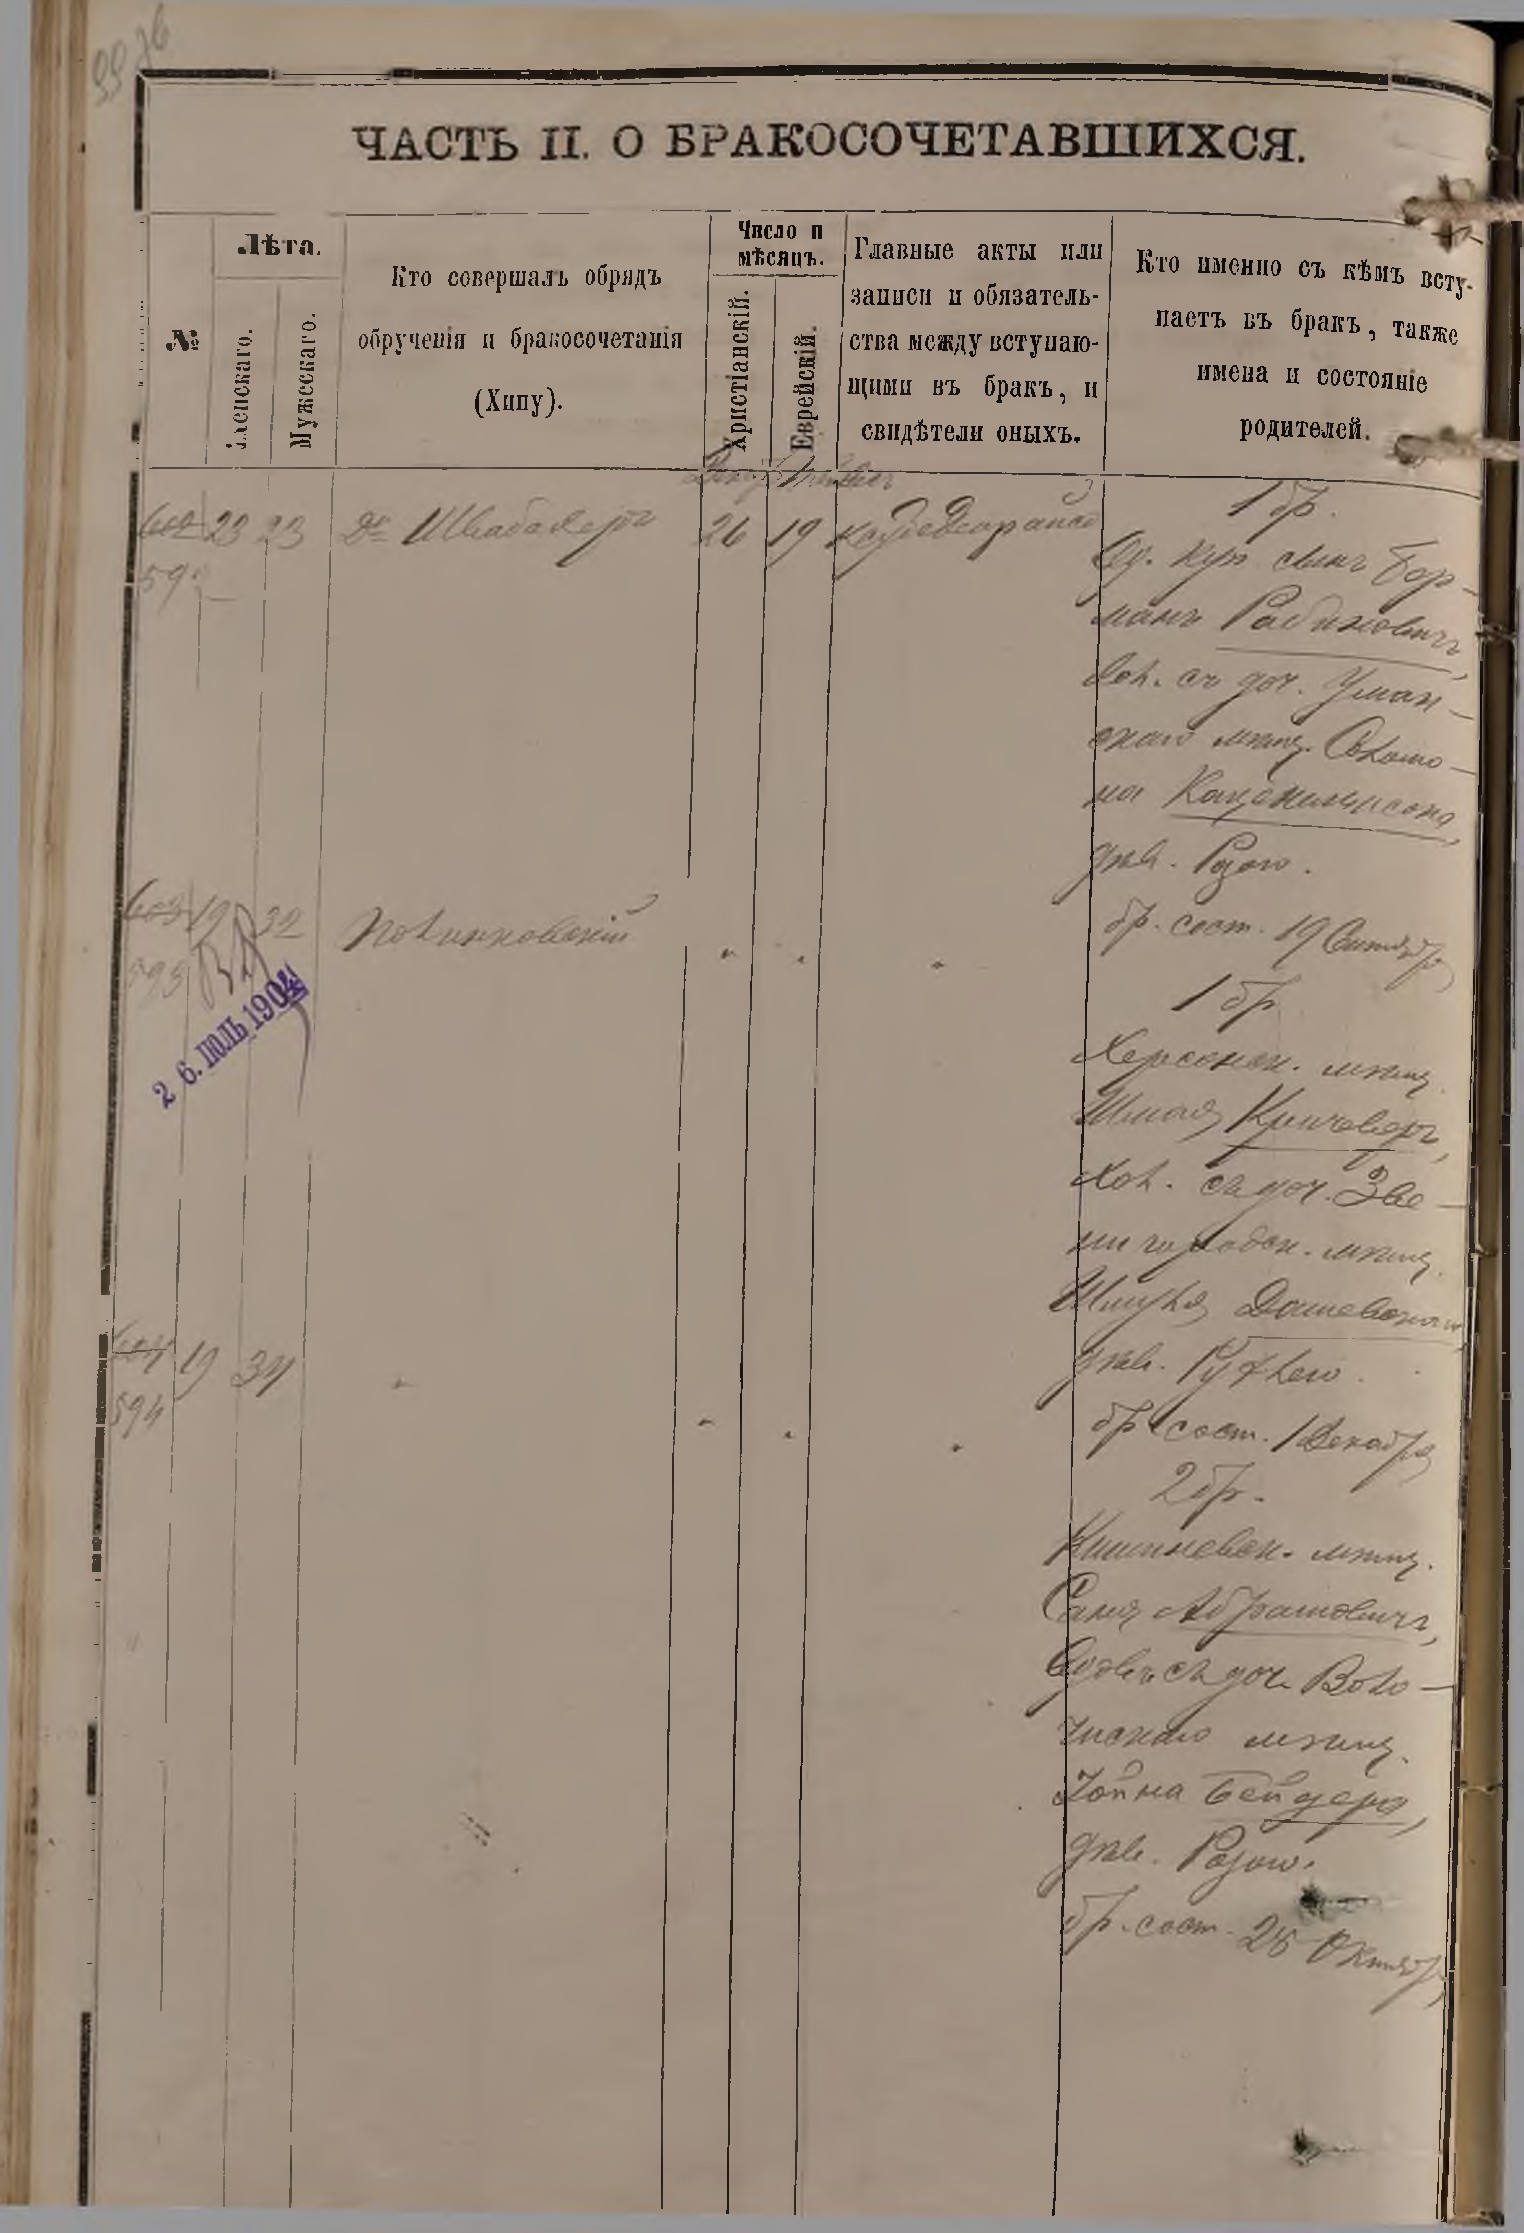 ЧАСТЬ II. О БРАКОСОЧЕТАВШИХСЯ.
№
Лѣта.
Женскаго.
Мужескаго.
Кто совершалъ обрядъ
обрученія и бракосочетанія
(Хипу).
Число и
мѣсяцъ.
Христіанскій.
Еврейскій.
Главные акты или
записи и обязатель-
ства между вступаю-
щими въ бракъ, и
свидѣтели оныхъ.
Кто именно съ кѣмъ всту-
паетъ въ бракъ, также
имена и состояніе
родителей.
602 23 23 Дръ Швабахеръ 26 19
1 бр.
Од. куп. сынъ Гер-
манъ Рабиновичъ,
хол. съ доч. Уман-
скаго мѣщ. Соломо-
на Каценельсона,
дѣв. Розою.
бр. сост. 19 Сентября
603 19 32 Полинковскій " " "
593
26. ІЮЛЬ 1904
1 бр.
Херсонск. мѣщ.
Шмая Кричеверъ,
хол. съ доч. Зве-
нигородск. мѣщ.
Шмуля Дашевскаго,
дѣв. Рухлею.
бр. сост. 1 Декабря
604 19 34 " " " "
594
2 бр.
Кишиневск. мѣщ.
Саня Абрамовичъ,
вдовъ съ доч. Воло-
чискаго мѣщ.
Іойна Бейдеръ,
дѣв. Розою.
бр. сост. 26 Октября